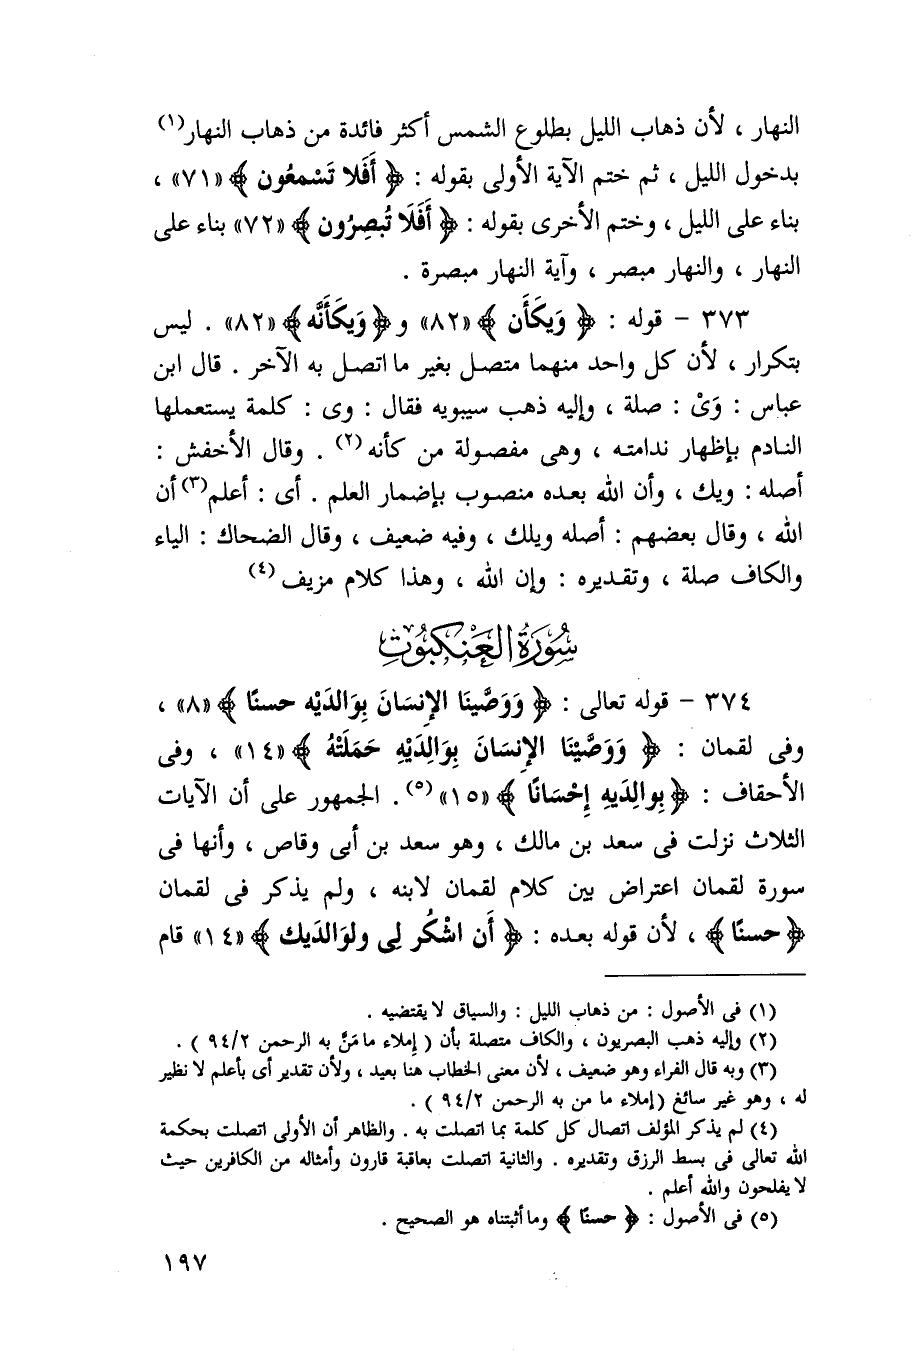 النهار ، لأن ذهاب الليل بطلوع الشمس أكثر فائدة من ذهاب النهار(١)
بدخول الليل ، ثم ختم الآية الأولى بقوله : ﴿ أَفَلا تَسْمعُون ﴾ «٧١» ،
بناء على الليل ، وختم الأخرى بقوله : ﴿ أَفَلَا تُبصِرُون ﴾ «٧٢» بناء على
النهار ، والنهار مبصر ، وآية النهار مبصرة .
٣٧٣ – قوله : ﴿ وَيكَأَن ﴾ «٨٢» و ﴿ وَيكَأَنَّه ﴾ «٨٢» . ليس
بتكرار ، لأن كل واحد منهما متصل بغير ما اتصل به الآخر . قال ابن
عباس : وَىْ : صلة ، وإليه ذهب سيبويه فقال : وى : كلمة يستعملها
النادم بإظهار ندامته ، وهى مفصولة من كأنه (٢) . وقال الأخفش :
أصله : ويك ، وأن الله بعده منصوب بإضمار العلم . أى : أعلم(٣) أن
الله ، وقال بعضهم : أصله ويلك ، وفيه ضعيف ، وقال الضحاك : الياء
والكاف صلة ، وتقديره : وإن الله ، وهذا كلام مزيف (٤)
سُورَةُ العَنْكَبُوتِ
٣٧٤ – قوله تعالى : ﴿ وَوَصَّينَا الإِنسَانَ بِوَالدَيْه حسنًا ﴾ «٨» ،
وفى لقمان : ﴿ وَوَصَّيْنَا الإِنسَانَ بِوَالِدَيْهِ حَمَلَتْهُ ﴾ «١٤» ، وفى
الأحقاف : ﴿ بِوالِدَيهِ إِحْسَانًا ﴾ «١٥» (٥) . الجمهور على أن الآيات
الثلاث نزلت فى سعد بن مالك ، وهو سعد بن أبى وقاص ، وأنها فى
سورة لقمان اعتراض بين كلام لقمان لابنه ، ولم يذكر فى لقمان
﴿ حسنًا ﴾ ، لأن قوله بعده : ﴿ أَن اشْكُر لِى ولوَالدَيك ﴾ «١٤» قام
(١) فى الأصول : من ذهاب الليل : والسياق لا يقتضيه .
(٢) وإليه ذهب البصريون ، والكاف متصلة بأن ( إملاء ما مَنَّ به الرحمن ٩٤/٢ ) .
(٣) وبه قال الفراء وهو ضعيف ، لأن معنى الخطاب هنا بعيد ، ولأن تقدير أى بأعلم لا نظير
له ، وهو غير سائغ (إملاء ما من به الرحمن ٩٤/٢ ) .
(٤) لم يذكر المؤلف اتصال كل كلمة بما اتصلت به . والظاهر أن الأولى اتصلت بحكمة
الله تعالى فى بسط الرزق وتقديره . والثانية اتصلت بعاقبة قارون وأمثاله من الكافرين حيث
لا يفلحون والله أعلم .
(٥) فى الأصول : ﴿ حسنًا ﴾ وما أثبتناه هو الصحيح .
١٩٧